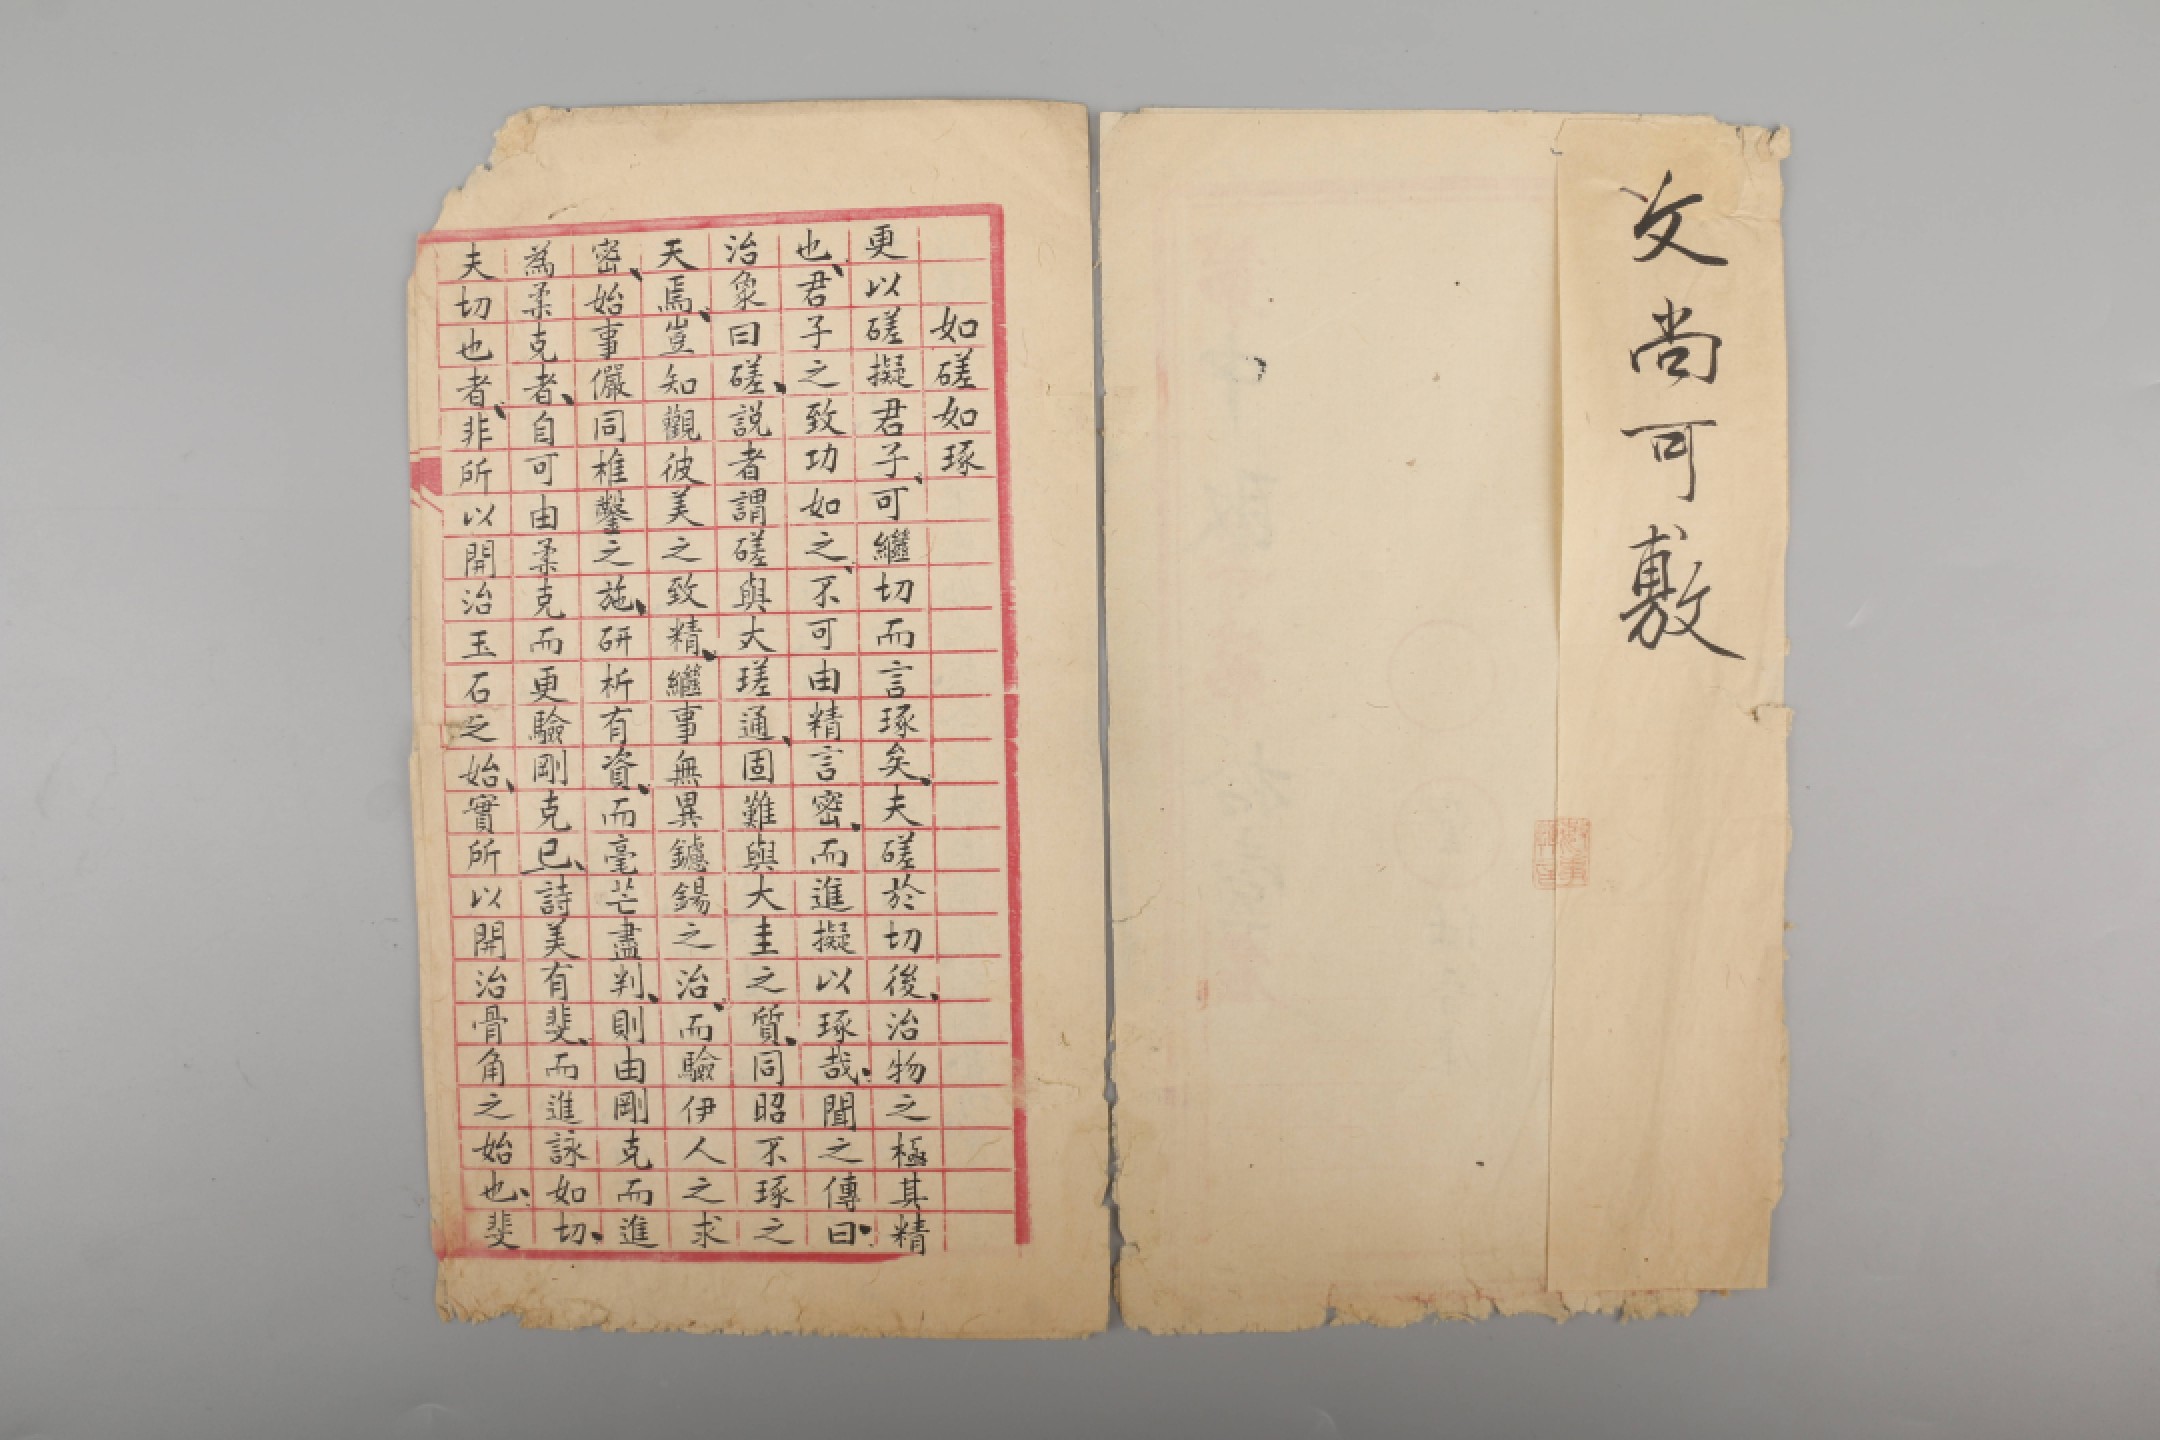 文尚可敷
如磋如琢
更以磋擬君子、可繼切而言琢矣、夫磋於切後、治物之極其精
也、君子之致功如之、不可由精言密、而進擬以琢哉、聞之傳曰、
治象曰磋、說者謂磋與大瑳通、固難與大圭之質、同昭不琢之
天焉、豈知觀彼美之致精、繼事無異鑢鐋之治、而驗伊人之求
密、始事儼同椎鑿之施、研析有資、而毫芒盡判、則由剛克而進
為柔克者、自可由柔克而更驗剛克已、詩美有斐、而進詠如切、
夫切也者、非所以開治玉石之始、實所以開治骨角之始也、斐